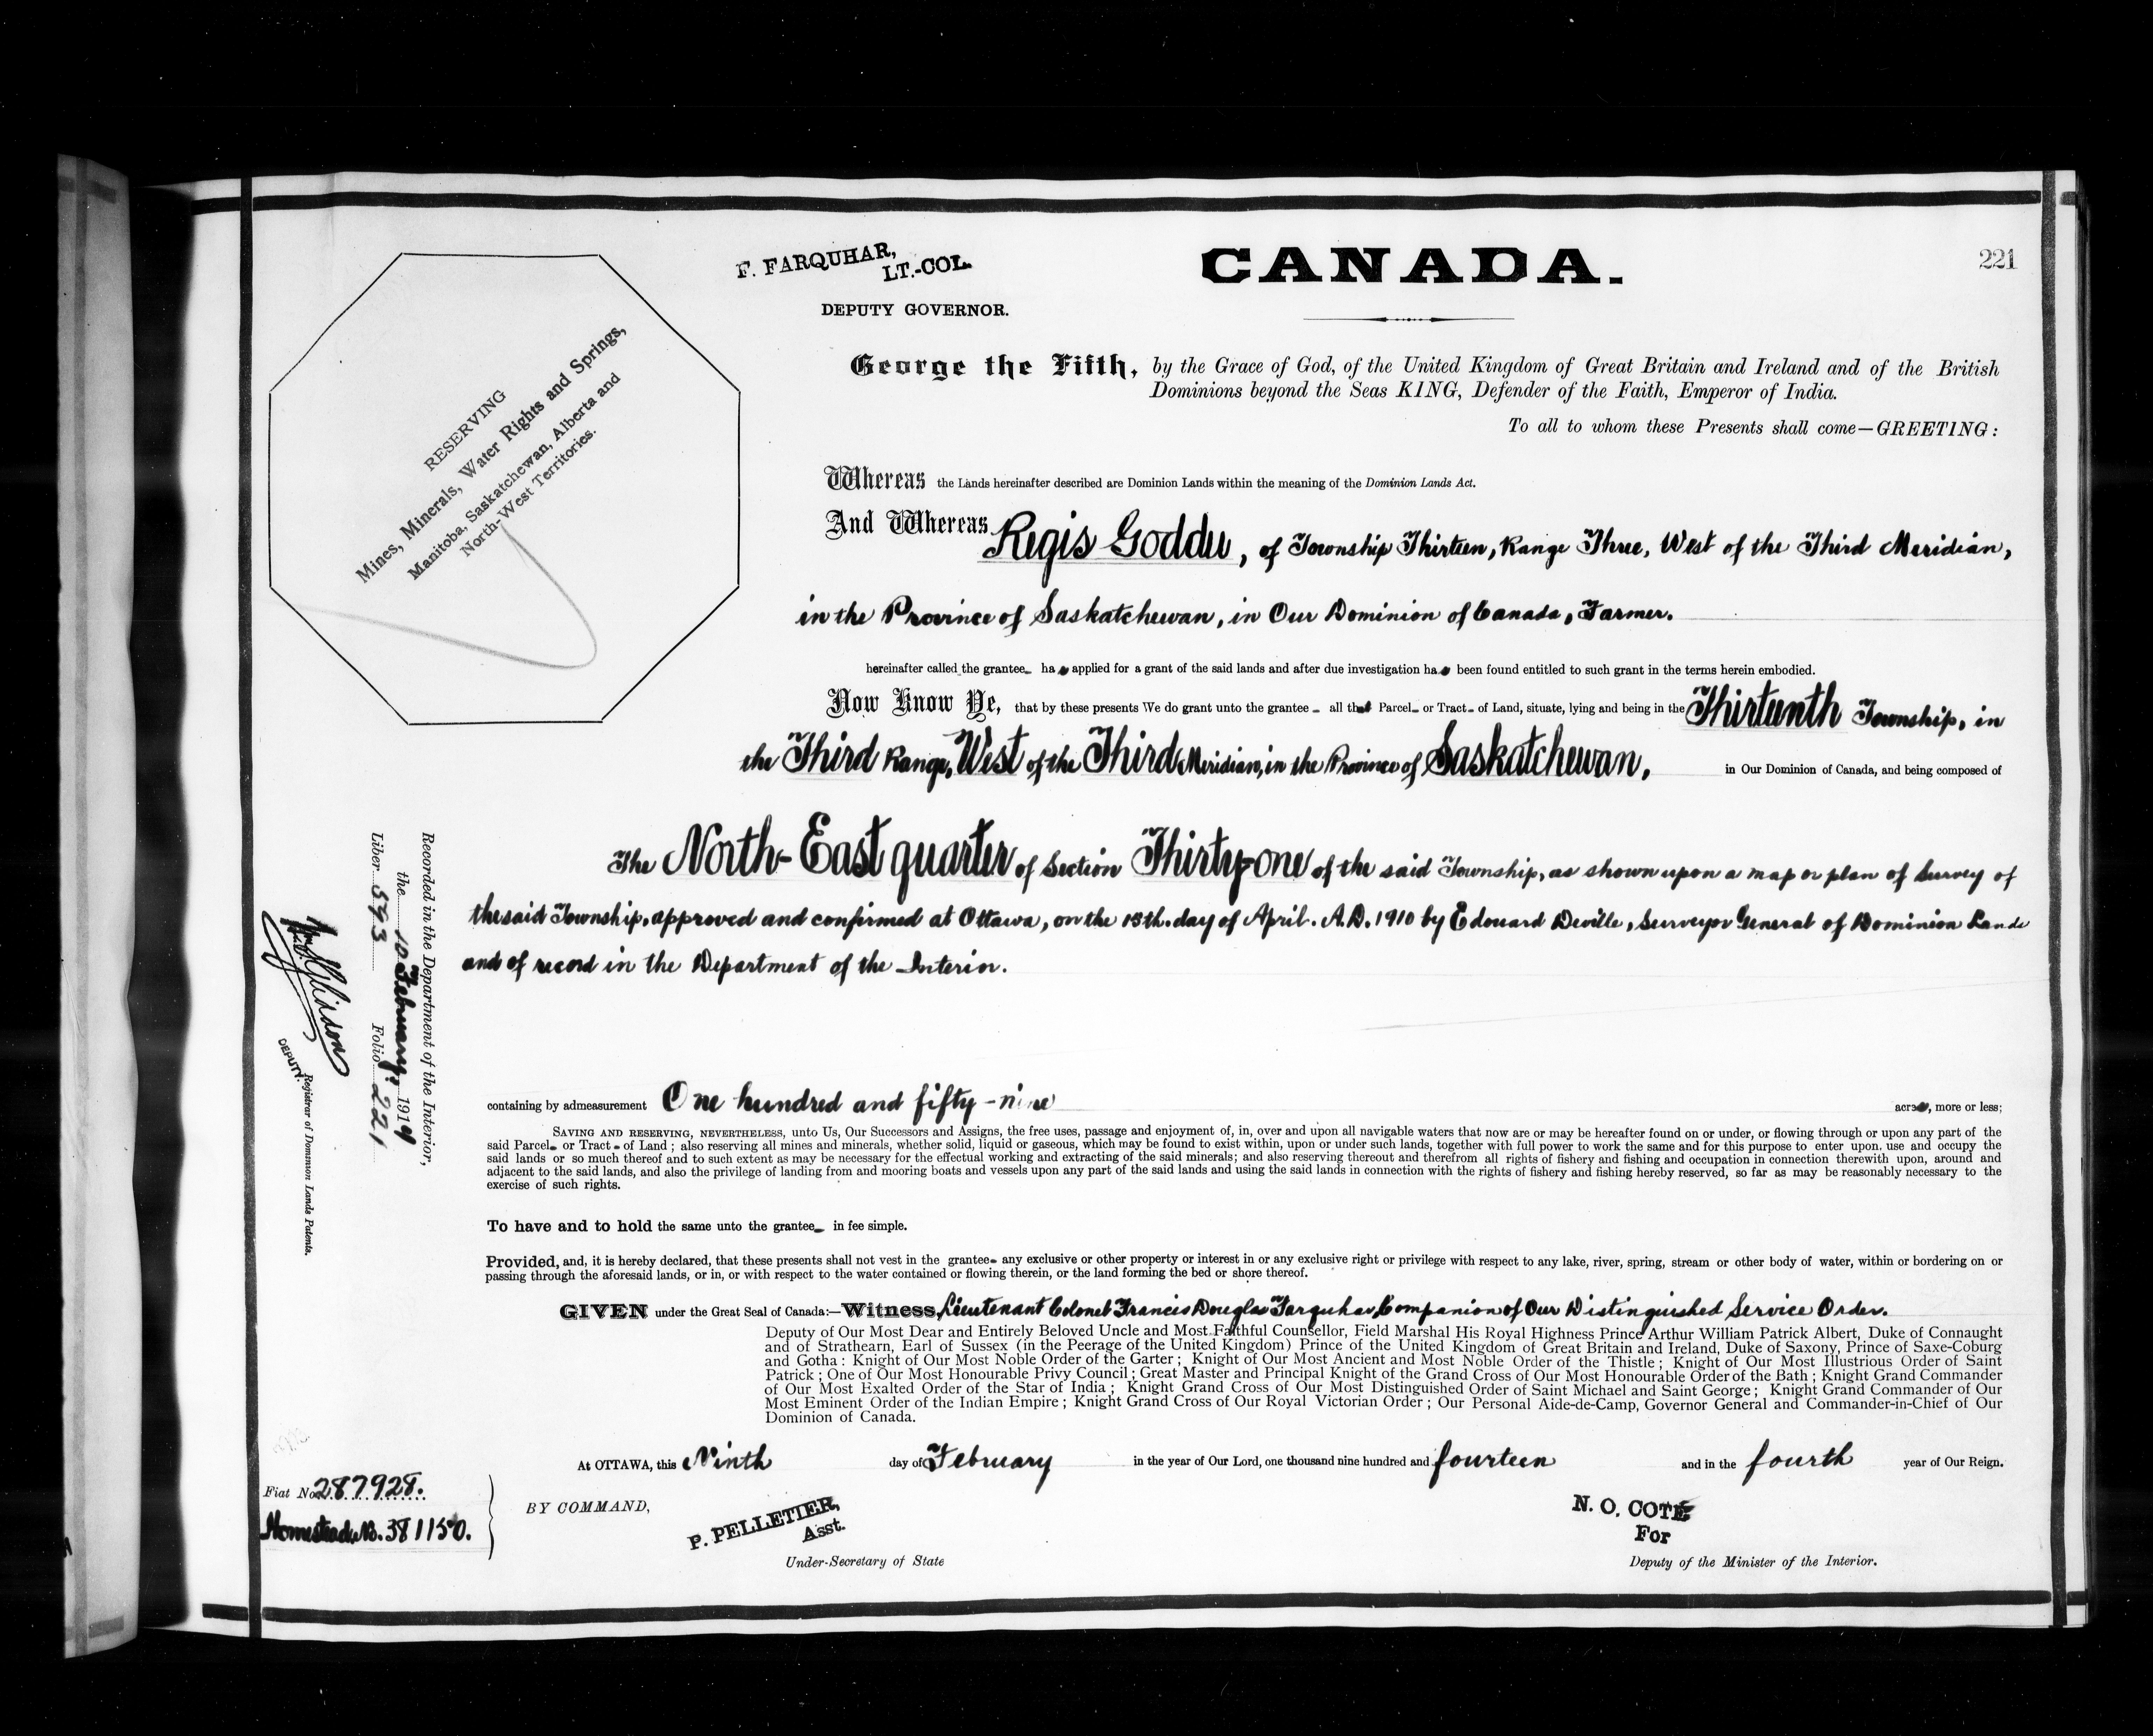 221
F. FARQUHAR,
LT.-COL.
DEPUTY GOVERNOR.
CANADA.
RESERVING
Mines, Minerals, Water Rights and Springs,
Manitoba, Saskatchewan, Alberta and
North-West Territories.
George the Fifth, by the Grace of God, of the United Kingdom of Great Britain and Ireland and of the British
Dominions beyond the Seas KING, Defender of the Faith, Emperor of India.
To all to whom these Presents shall come—GREETING:
Whereas the Lands hereinafter described are Dominion Lands within the meaning of the Dominion Lands Act.
And Whereas Regis Goddu, of Township Thirteen, Range Three, West of the Third Meridian,
in the Province of Saskatchewan, in Our Dominion of Canada, Farmer.
hereinafter called the grantee has applied for a grant of the said lands and after due investigation has been found entitled to such grant in the terms herein embodied.
Now Know Ye, that by these presents We do grant unto the grantee all that Parcel or Tract of Land, situate, lying and being in the Thirteenth Township, in
the Third Range, West of the Third Meridian, in the Province of Saskatchewan, in Our Dominion of Canada, and being composed of
The North-East quarter of Section Thirty-one of the said Township, as shown upon a map or plan of Survey of
the said Township, approved and confirmed at Ottawa, on the 15th. day of April. A.D. 1910 by Edouard Deville, Surveyor General of Dominion Lands
and of record in the Department of the Interior.
containing by admeasurement One hundred and fifty-nine acres, more or less;
SAVING AND RESERVING, NEVERTHELESS, unto Us, Our Successors and Assigns, the free uses, passage and enjoyment of, in, over and upon all navigable waters that now are or may be hereafter found on or under, or flowing through or upon any part of the
said Parcel or Tract of Land; also reserving all mines and minerals, whether solid, liquid or gaseous, which may be found to exist within, upon or under such lands, together with full power to work the same and for this purpose to enter upon, use and occupy the
said lands or so much thereof and to such extent as may be necessary for the effectual working and extracting of the said minerals; and also reserving thereout and therefrom all rights of fishery and fishing and occupation in connection therewith upon, around and
adjacent to the said lands, and also the privilege of landing from and mooring boats and vessels upon any part of the said lands and using the said lands in connection with the rights of fishery and fishing hereby reserved, so far as may be reasonably necessary to the
exercise of such rights.
To have and to hold the same unto the grantee in fee simple.
Provided, and, it is hereby declared, that these presents shall not vest in the grantee any exclusive or other property or interest in or any exclusive right or privilege with respect to any lake, river, spring, stream or other body of water, within or bordering on or
passing through the aforesaid lands, or in, or with respect to the water contained or flowing therein, or the land forming the bed or shore thereof.
GIVEN under the Great Seal of Canada:—Witness, Lieutenant Colonel Francis Douglas Farquhar, Companion of Our Distinguished Service Order.
Deputy of Our Most Dear and Entirely Beloved Uncle and Most Faithful Counsellor, Field Marshal His Royal Highness Prince Arthur William Patrick Albert, Duke of Connaught
and of Strathearn, Earl of Sussex (in the Peerage of the United Kingdom) Prince of the United Kingdom of Great Britain and Ireland, Duke of Saxony, Prince of Saxe-Coburg
and Gotha: Knight of Our Most Noble Order of the Garter; Knight of Our Most Ancient and Most Noble Order of the Thistle; Knight of Our Most Illustrious Order of Saint
Patrick; One of Our Most Honourable Privy Council; Great Master and Principal Knight of the Grand Cross of Our Most Honourable Order of the Bath; Knight Grand Commander
of Our Most Exalted Order of the Star of India; Knight Grand Cross of Our Most Distinguished Order of Saint Michael and Saint George; Knight Grand Commander of Our
Most Eminent Order of the Indian Empire; Knight Grand Cross of Our Royal Victorian Order; Our Personal Aide-de-Camp, Governor General and Commander-in-Chief of Our
Dominion of Canada.
At OTTAWA, this Ninth day of February in the year of Our Lord, one thousand nine hundred and fourteen and in the fourth year of Our Reign.
BY COMMAND,
P. PELLETIER,
Asst.
Under-Secretary of State
N. O. COTÉ
For
Deputy of the Minister of the Interior.
Fiat No. 287928.
Homestead No. 381150.
Recorded in the Department of the Interior,
the 10 February. 1914
Liber 543 Folio 221
DEPUTY.
Registrar of Dominion Lands Patents.